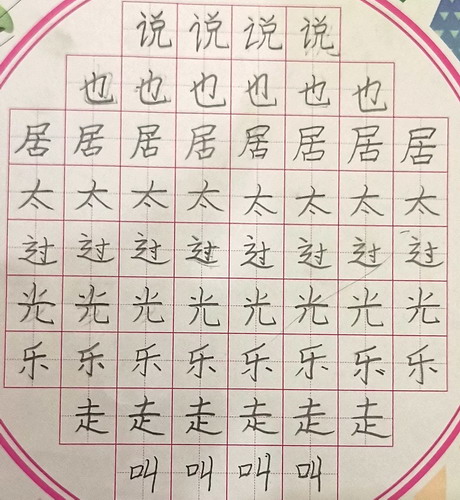 说说说说
也也也也也也
居居居居居居居居
太太太太太太太太
过过过过过过过过
光光光光光光光光
乐乐乐乐乐乐乐乐
走走走走走走
叫叫叫叫